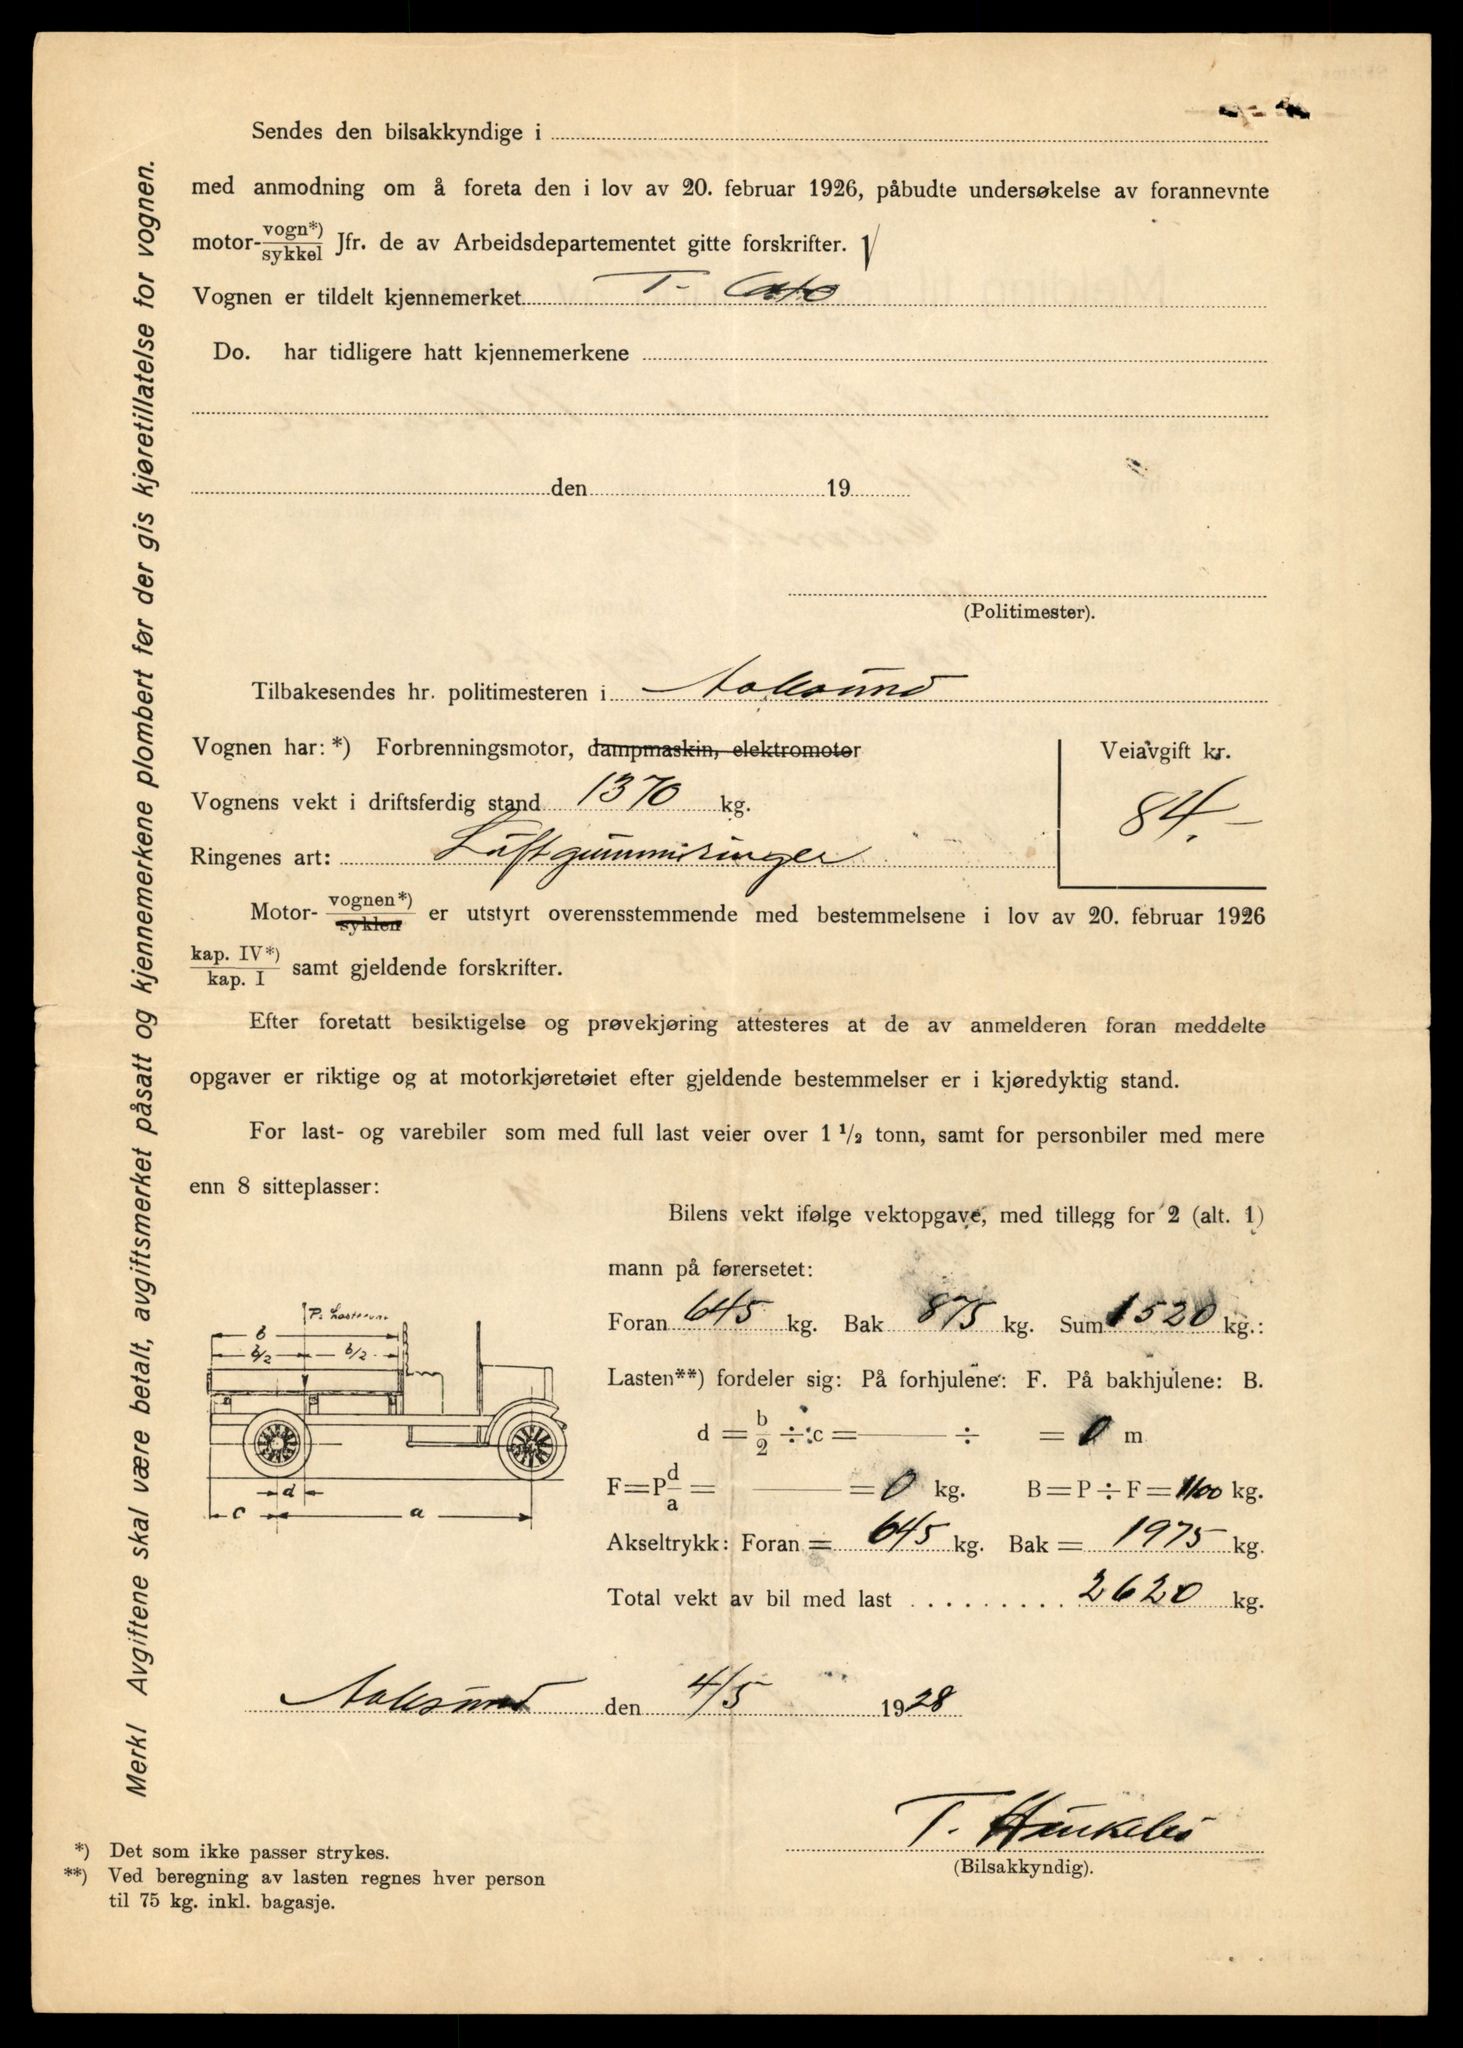 Sendes den bilsakkyndige i
med anmodning om å foreta den i lov av 20. februar 1926, påbudte undersøkelse av forannevnte
motor- vogn*) / sykkel Jfr. de av Arbeidsdepartementet gitte forskrifter.
Vognen er tildelt kjennemerket T-
Do. har tidligere hatt kjennemerkene
den 19
(Politimester).
Tilbakesendes hr. politimesteren i Aalesund
Vognen har: *) Forbrenningsmotor, dampmaskin, elektromotor
Veiavgift kr.
84.-
Vognens vekt i driftsferdig stand 1370 kg.
Ringenes art: Luftgummiringer
Motor- vognen*) / syklen er utstyrt overensstemmende med bestemmelsene i lov av 20. februar 1926
kap. IV*) / kap. I samt gjeldende forskrifter.
Efter foretatt besiktigelse og prøvekjøring attesteres at de av anmelderen foran meddelte
opgaver er riktige og at motorkjøretøiet efter gjeldende bestemmelser er i kjøredyktig stand.
For last- og varebiler som med full last veier over 1 1/2 tonn, samt for personbiler med mere
enn 8 sitteplasser:
Bilens vekt ifølge vektopgave, med tillegg for 2 (alt. 1)
mann på førersetet:
Foran 645 kg. Bak 875 kg. Sum 1520 kg.:
Lasten**) fordeler sig: På forhjulene: F. På bakhjulene: B.
d = b/2 ÷ c = ÷ = 0 m
F = P d/a = = 0 kg. B = P ÷ F = 1100 kg.
Akseltrykk: Foran = 645 kg. Bak = 1975 kg.
Total vekt av bil med last . . . . . . . . . 2620 kg.
P.
b
b/2 b/2
d
c a
Aalesund den 4/5 1928
(Bilsakkyndig).
*) Det som ikke passer strykes.
**) Ved beregning av lasten regnes hver person
til 75 kg. inkl. bagasje.
Merk! Avgiftene skal være betalt, avgiftsmerket påsatt og kjennemerkene plombert før der gis kjøretillatelse for vognen.